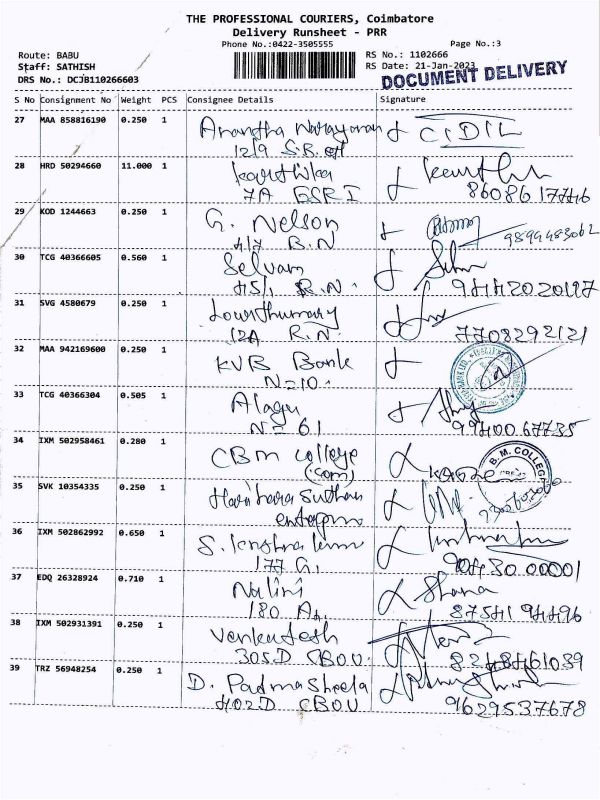 THE PROFESSIONAL COURIERS, Coimbatore
Delivery Runsheet - PRR
Phone No.:0422-3505555
Page No.:3
Route: BABU
RS No.: 1102666
Staff: SATHISH
RS Date: 21-Jan-2023
DRS No.: DCJB110266603
DOCUMENT DELIVERY
S No Consignment No Weight PCS Consignee Details Signature
27 MAA 858816190 0.250 1 Anantha Narayanan
12/9 S.R.
28 HRD 50294660 11.000 1 karthika
7A ESRI 8608617746
29 KOD 1244663 0.250 1 G. Nelson
417 B.N 9894483062
30 TCG 40366605 0.560 1 Selvam
45/1 R.N.
31 SVG 4580679 0.250 1 Lourthumary
12A R.N. 7708292121
32 MAA 942169600 0.250 1 KVB Bank
N=10.
33 TCG 40366304 0.505 1 Alagu
N= 61 9940067735
34 IXM 502958461 0.280 1 CBM College
(com)
B. M. COLLEGE
35 SVK 10354335 0.250 1 Harihara Sudhan
36 IXM 502862992 0.650 1 S. 
177 G. 9043000001
37 EDQ 26328924 0.710 1 Nalini Shana
180 A. 8754194496
38 IXM 502931391 0.250 1 Venkatesh
305D CBOU. 8248461039
39 TRZ 56948254 0.250 1 D. Padma Sheela
402D CBOU 9629537678